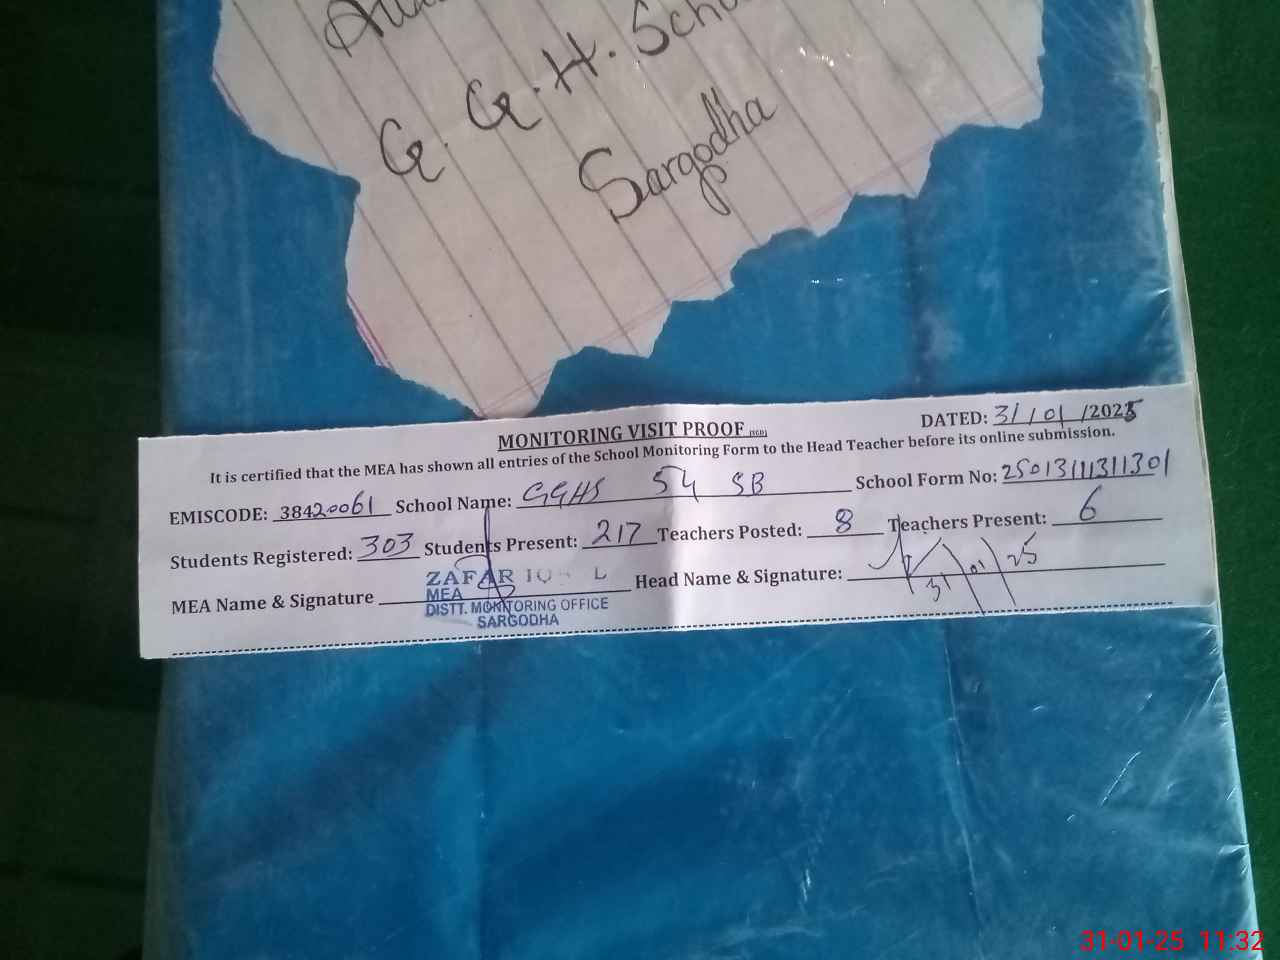 G. G. H. School
Sargodha
MONITORING VISIT PROOF
DATED: 31/01/2025
It is certified that the MEA has shown all entries of the School Monitoring Form to the Head Teacher before its online submission.
EMISCODE: 38420061 School Name: GGHS 54 SB School Form No:
Students Registered: 303 Students Present: 217 Teachers Posted: 8 Teachers Present: 6
MEA Name & Signature ZAFAR Head Name & Signature: 31/01/25
MEA
DISTT. MONITORING OFFICE
SARGODHA
31-01-25 11:32